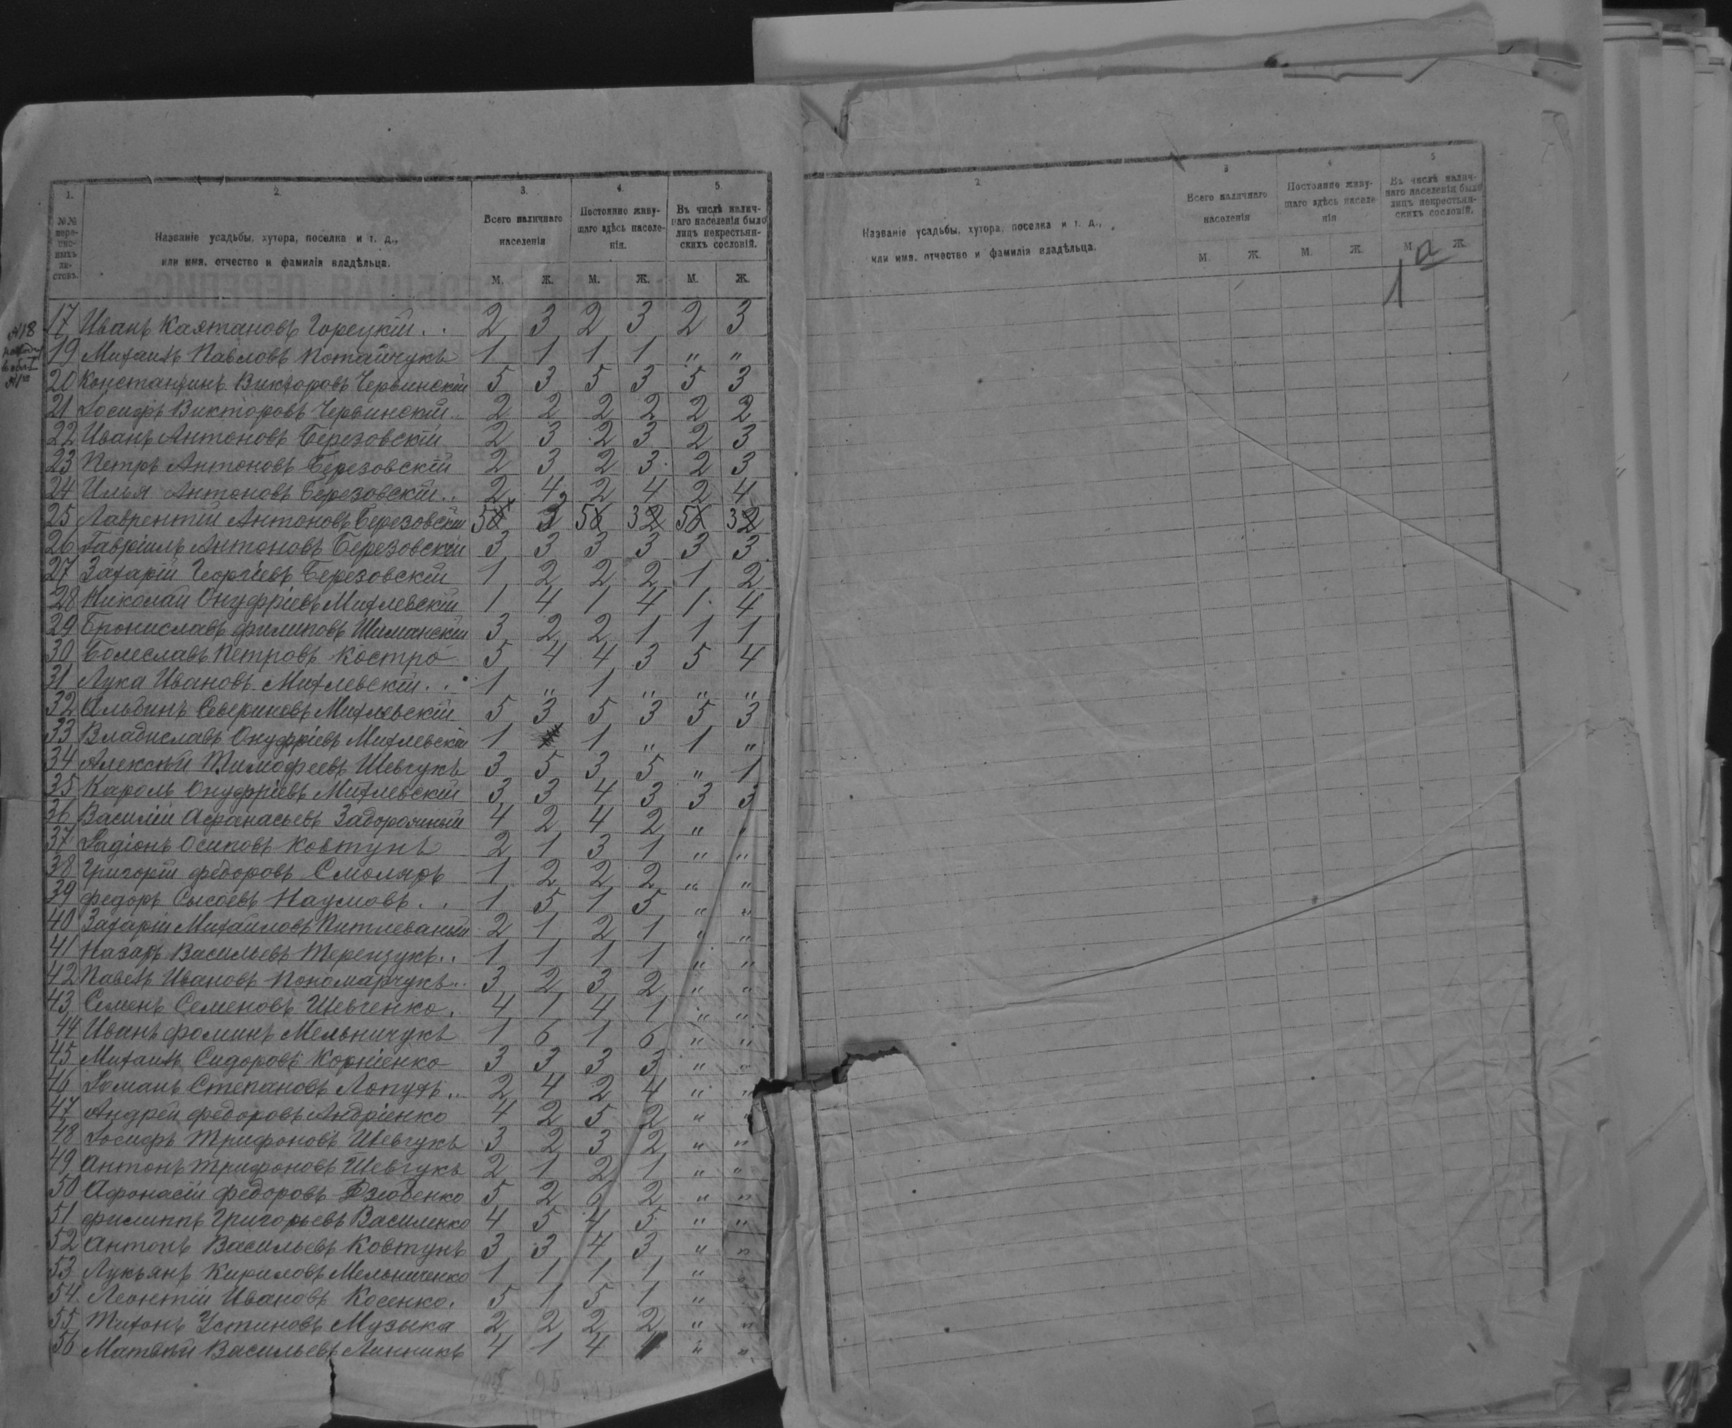 1. 2. 3. 4. 5.
№№ пере-
пис-
ныхъ
ли-
стовъ.
Названіе усадьбы, хутора, поселка и т. д.,
или имя, отчество и фамилія владѣльца.
Всего наличнаго
населенія
Постоянно живу-
щаго здѣсь населе-
нія.
Въ числѣ налич-
наго населенія было
лицъ некрестьян-
скихъ сословій.
М. Ж. М. Ж. М. Ж.
№18
17 Иванъ Каэтановъ Горецкій . . 2 3 2 3 2 3
19 Михаилъ Павловъ Потайчукъ 1 1 1 1 " "
20 Константинъ Викторовъ Червинскій 5 3 5 3 5 3
21 Іосифъ Викторовъ Червинскій .. 2 2 2 2 2 2
22 Иванъ Антоновъ Березовскій 2 3 2 3 2 3
23 Петръ Антоновъ Березовскій 2 3 2 3 2 3
24 Илья Антоновъ Березовскій .. 2 4 2 4 2 4
25 Лаврентій Антоновъ Березовскій 5 3 5 3 5 3
26 Гавріилъ Антоновъ Березовскій 3 3 3 3 3 3
27 Захарій Георгіевъ Березовскій 1 2 2 2 1 2
28 Николай Онуфріевъ Михлевскій 1 4 1 4 1 4
29 Брониславъ Филиповъ Шиманскій 3 2 2 1 1 1
30 Болеславъ Петровъ Костро 5 4 4 3 5 4
31 Лука Ивановъ Михлевскій . . 1 " 1 " " "
32 Альбинъ Севериновъ Михлевскій 5 3 5 3 5 3
33 Владиславъ Онуфріевъ Михлевскій 1 1 " 1 "
34 Алексѣй Тимофеевъ Шевчукъ 3 5 3 5 " 1
35 Кароль Онуфріевъ Михлевскій 3 3 4 3 3 3
36 Василій Афанасьевъ Задорожный 4 2 4 2 " "
37 Радіонъ Осиповъ Ковтунъ 2 1 3 1 " "
38 Григорій Федоровъ Смоляръ 1 2 2 2 " "
39 Федоръ Сысоевъ Наумовъ . . 1 5 1 5 " "
40 Захарій Михайловъ Питлеваный 2 1 2 1 " "
41 Назаръ Васильевъ Терещукъ .. 1 1 1 1 " "
42 Павелъ Ивановъ Пономарчукъ .. 3 2 3 2 " "
43 Семенъ Семеновъ Шевченко . 4 1 4 1 " "
44 Иванъ Фоминъ Мельничукъ 1 6 1 6 " "
45 Михаилъ Сидоровъ Корніенко 3 3 3 3 " "
46 Романъ Степановъ Лопухъ .. 2 4 2 4 " "
47 Андрей Федоровъ Андріенко 4 2 5 2 " "
48 Іосифъ Трифоновъ Шевчукъ 3 2 3 2 " "
49 Антонъ Трифоновъ Шевчукъ 2 1 2 1 " "
50 Афонасій Федоровъ Дзюбенко 5 2 6 2 " "
51 Филиппъ Григорьевъ Василенко 4 5 4 5 " "
52 Антонъ Васильевъ Ковтунъ 3 3 4 3 " "
53 Лукьянъ Кириловъ Мельниченко 1 1 1 1 " "
54 Леонтій Ивановъ Косенко . 5 1 5 1 " "
55 Тихонъ Устиновъ Музыка 2 2 2 2 " "
56 Матвѣй Васильевъ Линникъ 4 1 4 " "
2 3 4 5
Названіе усадьбы, хутора, поселка и т. д.,
или имя, отчество и фамилія владѣльца.
Всего наличнаго
населенія
Постоянно живу-
щаго здѣсь населе-
нія
Въ числѣ налич-
наго населенія было
лицъ некрестьян-
скихъ сословій.
М. Ж. М. Ж. М. Ж.